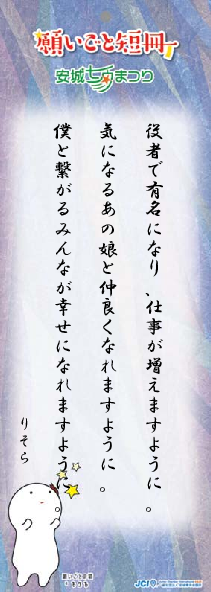 願いごと短冊
安城七夕まつり
役者で有名になり、仕事が増えますように。
気になるあの娘と仲良くなれますように。
僕と繋がるみんなが幸せになれますように。
りそら
JCI